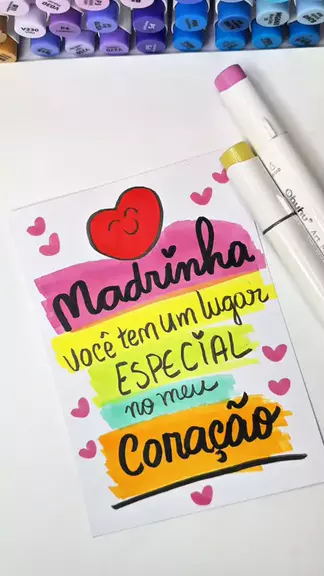 Madrinha
você tem um lugar
ESPECIAL
no meu
Coração
Ohuhu